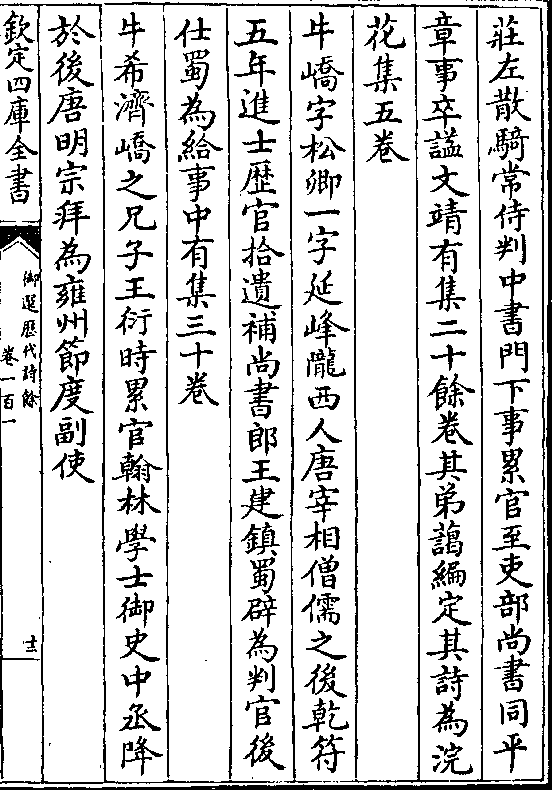 莊左散騎常侍判中書門下事累官至吏部尚書同平
章事卒諡文靖有集二十餘卷其弟藹編定其詩為浣
花集五卷
牛嶠字松卿一字延峰隴西人唐宰相僧儒之後乾符
五年進士歴官拾遺補尚書郎王建鎮蜀辟為判官後
仕蜀為給事中有集三十卷
牛希濟嶠之兄子王衍時累官翰林學士御史中丞降
於後唐明宗拜為雍州節度副使
欽定四庫全書
御選歴代詩餘
卷一百一
十三